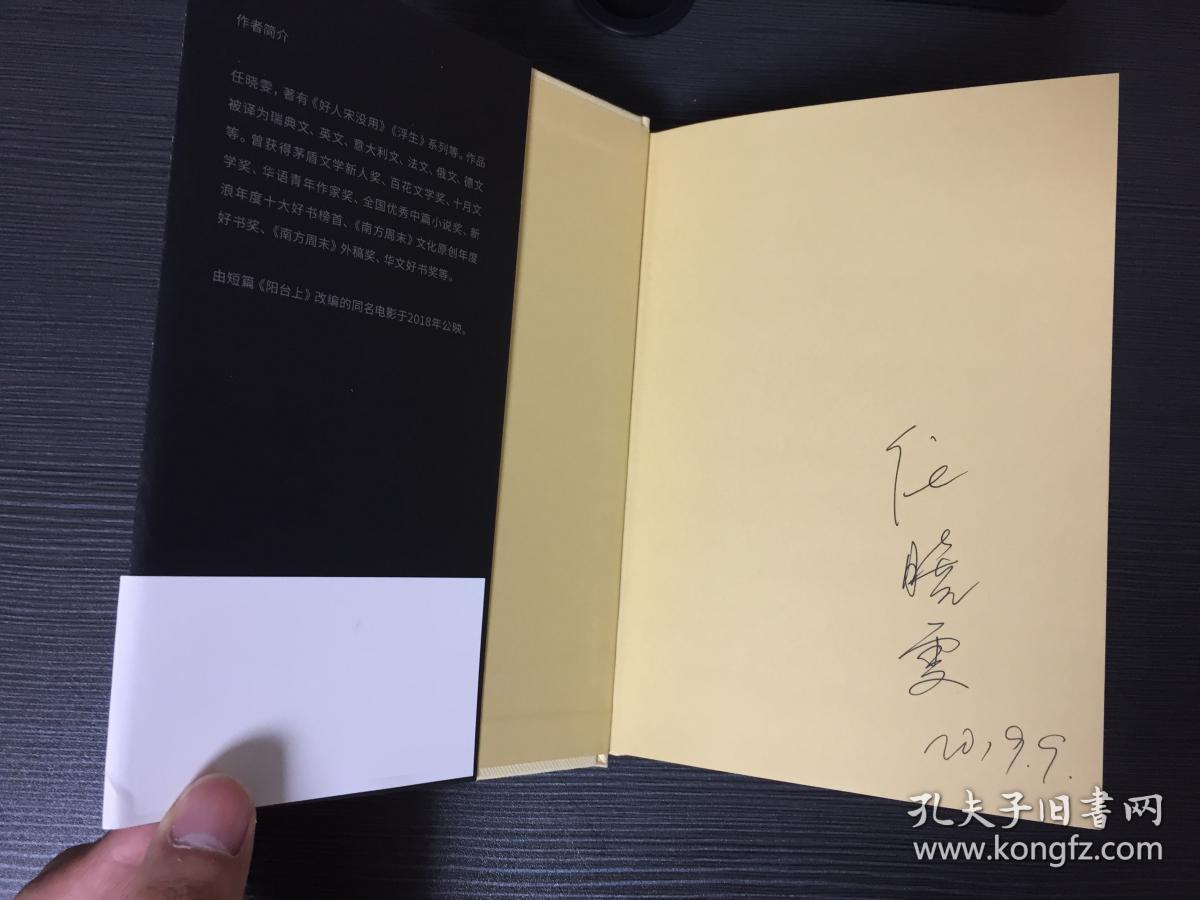 作者简介
任晓雯，著有《好人宋没用》《浮生》系列等。作品
被译为瑞典文、英文、意大利文、法文、俄文、德文
等。曾获得茅盾文学新人奖、百花文学奖、十月文
学奖、华语青年作家奖、全国优秀中篇小说奖，新
浪年度十大好书榜首、《南方周末》文化原创年度
好书奖、《南方周末》外稿奖、华文好书奖等。
由短篇《阳台上》改编的同名电影于2018年公映。
任
晓
雯
2019.9.
孔夫子旧书网
www.kongfz.com